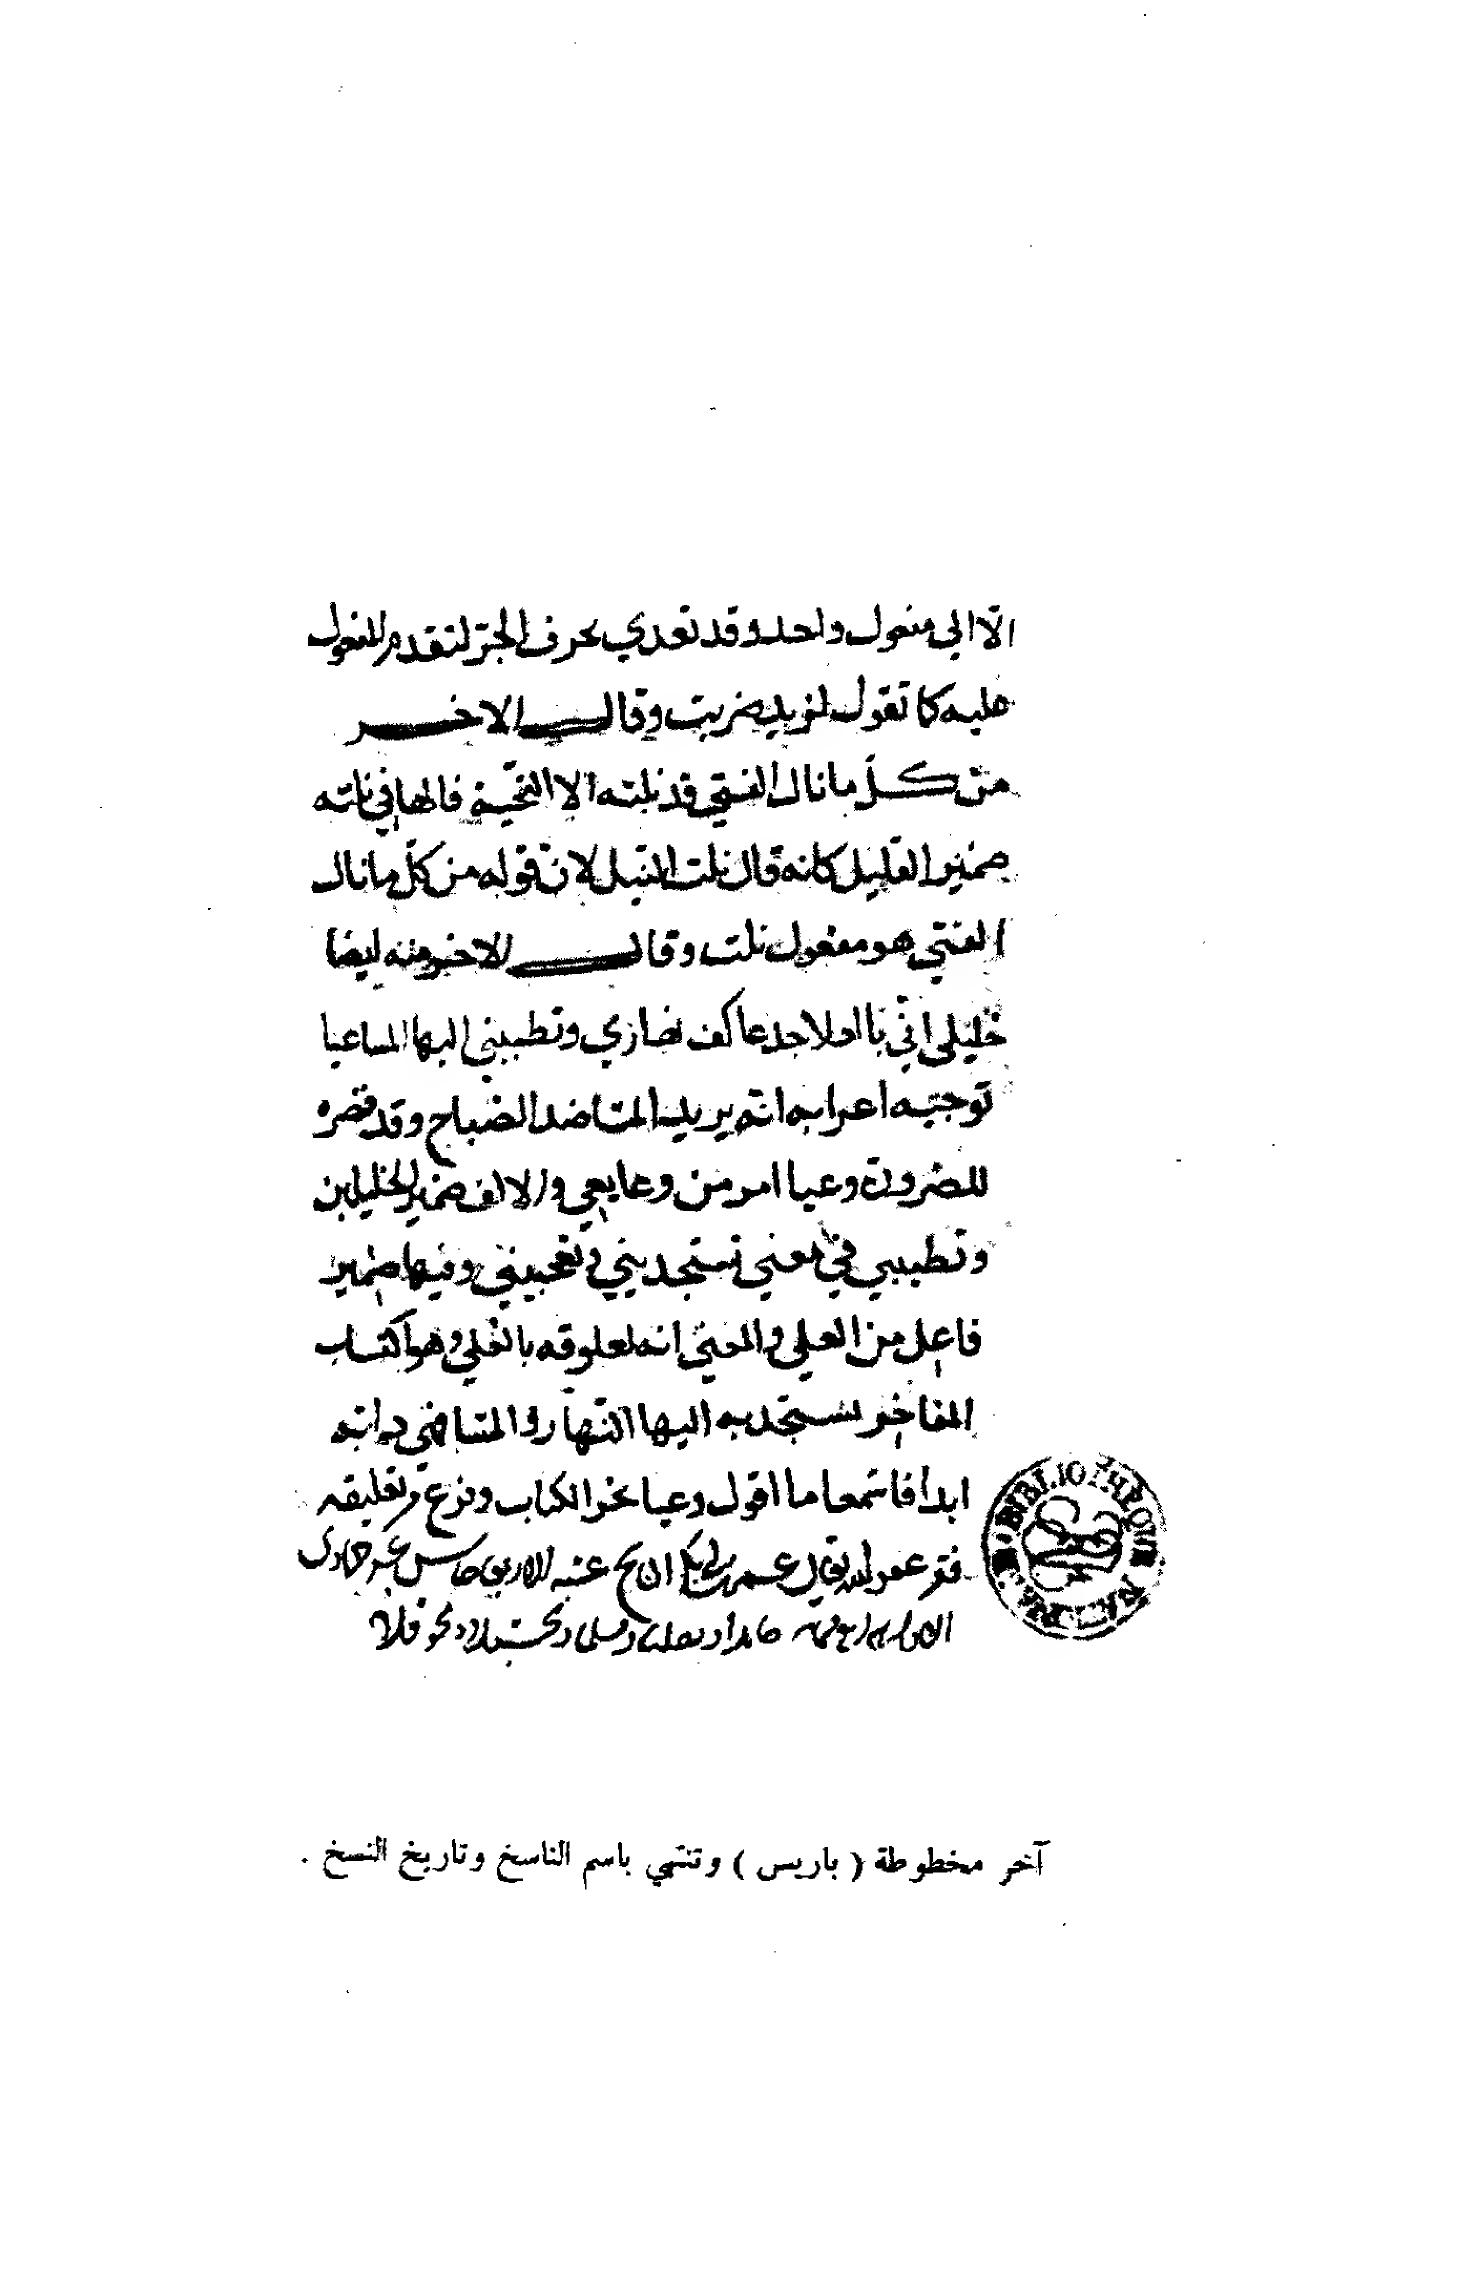 الّا الي مفعول واحد وقد تعدي بحرف الجرّ لتقدم المفعول
عليه كما تقول لزيد ضربت وقال الاخر
من كلّ ما نال الفتي قد نلته الا التحيّة فالها في نلته
ضمير القليل كانه قال نلت النيل لانّ قوله من كلّ ما نال
الفتي هو مفعول نلت وقال الاخر منه ايضا
خليلي انّي بالعلا جد عاكف نضاري وتطبيني اليها المساعيا
توجيه اعرابه انّه يريد الصباح وقد قصره
للضرورة وعيا امر من وعا يعي والالف ضمير الخليلين
وتطبيني في معني تستجديني وتعجبيني وفيها ضمير
فاعل من العلي والمعني انه لعلوقه بالعلي وهو اكتساب
المفاخر اليها النهار و دابه
ابدا فاسمعا ما اقول وعيا نخر الكتاب وفرغ من تعليقه
فقير عفو الله تعالى عمر بن ابي بكر عشية خامس عشر جمادى
حامدا
BIBLIOTHEQUE
آخر مخطوطة ( باريس ) وتنتهي باسم الناسخ وتاريخ النسخ .